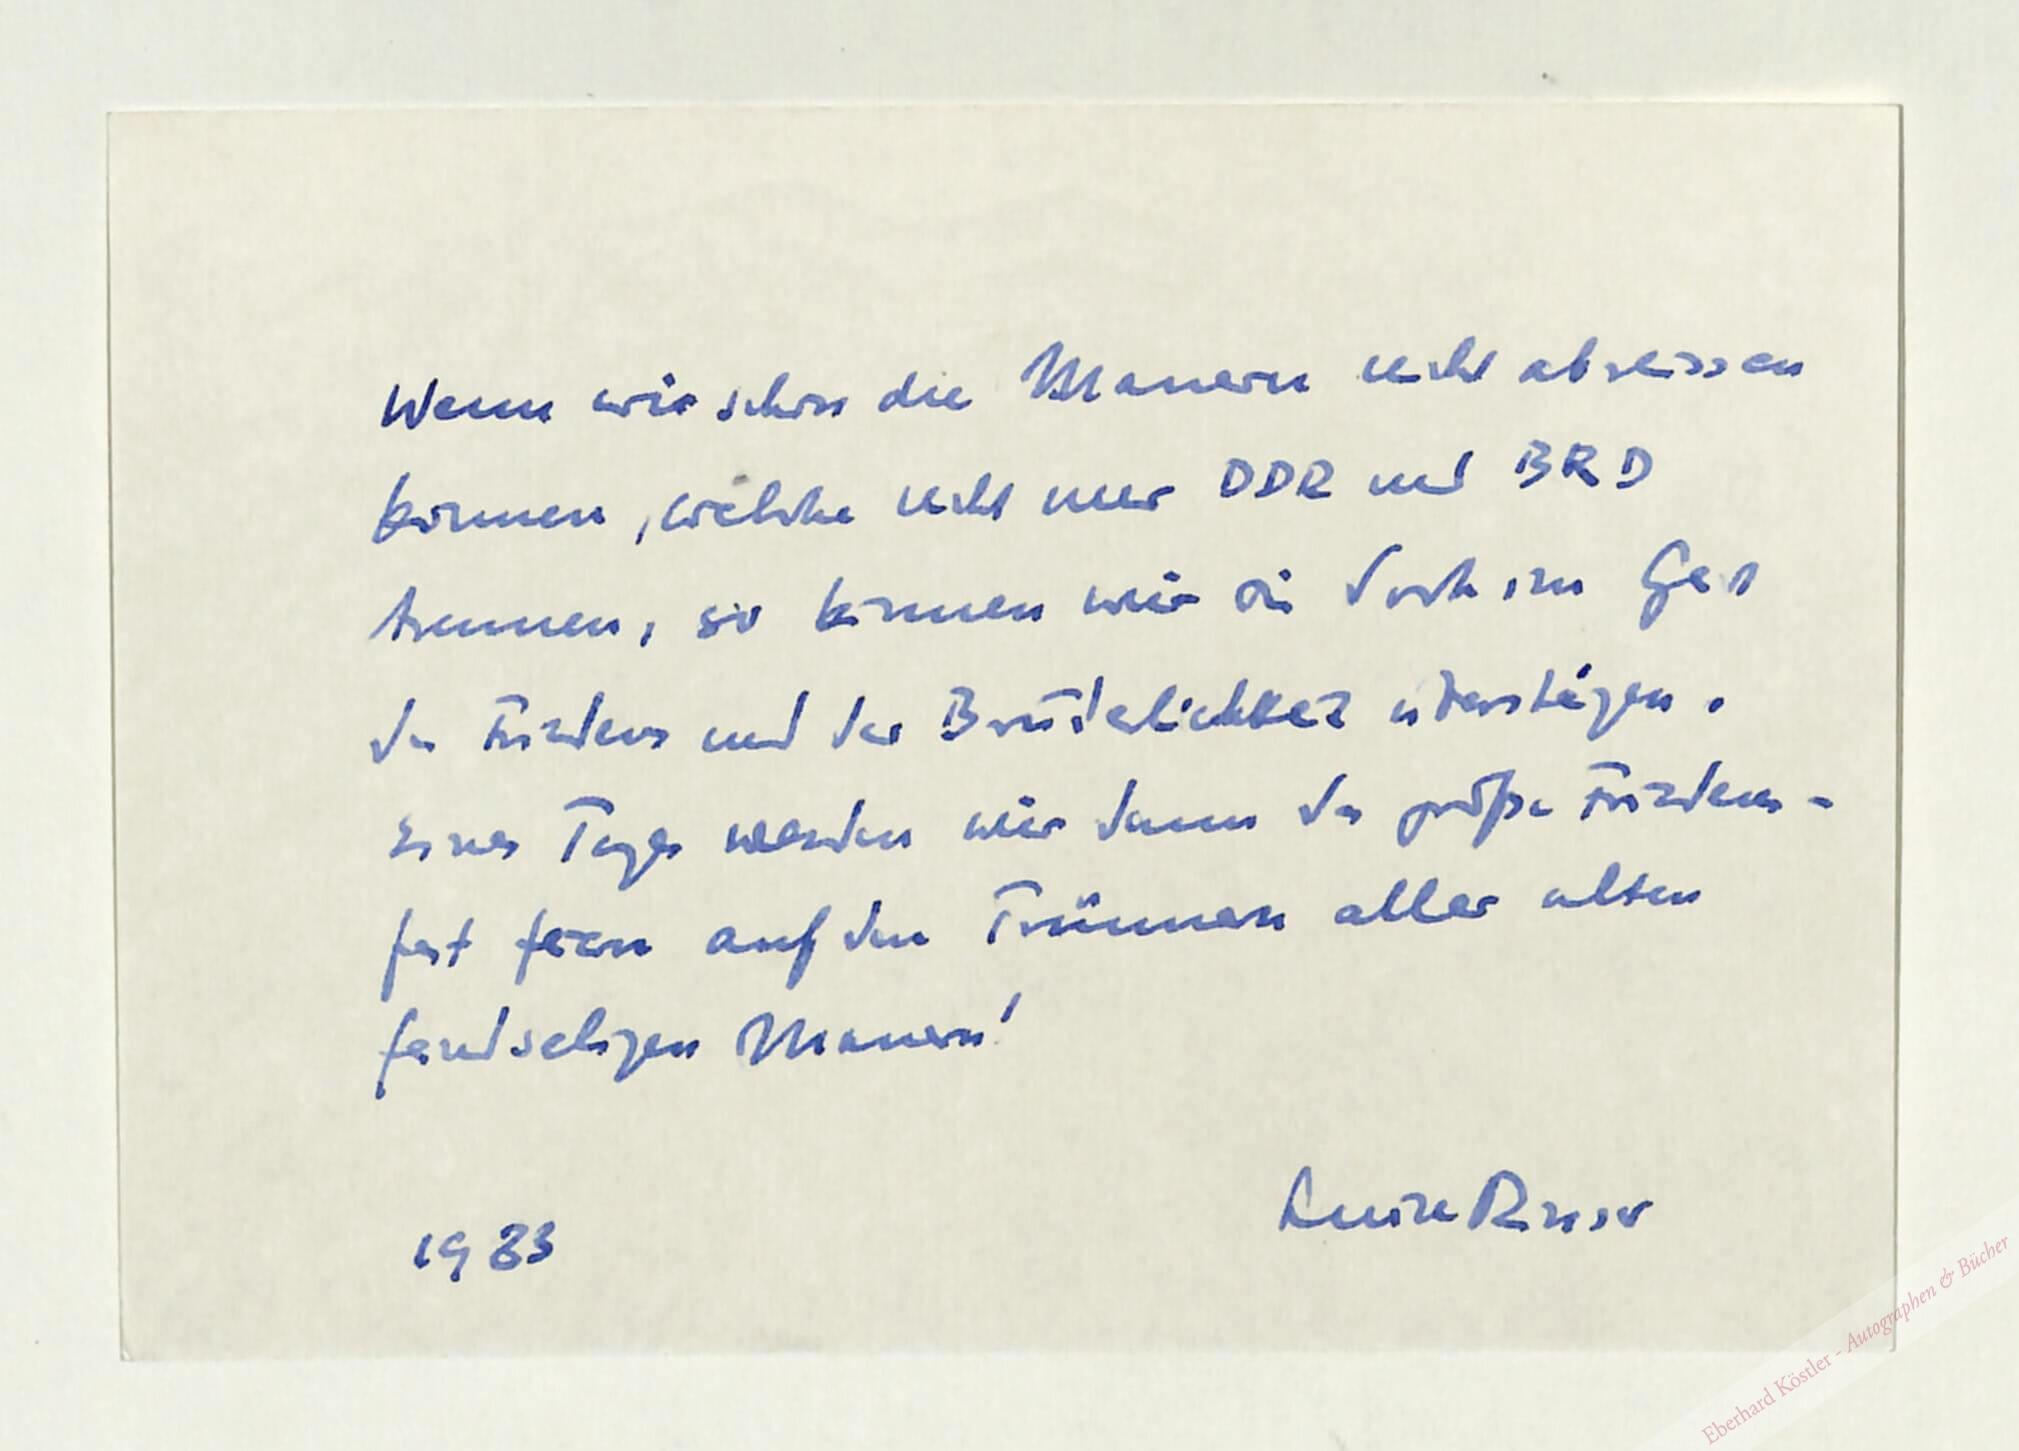 Wenn wir schon die Mauern nicht abreissen
können, welche nicht nur DDR und BRD
trennen, so können wir sie doch im Geist
des Friedens und der Brüderlichkeit übersteigen.
Eines Tages werden wir dann das große Friedens-
fest feiern auf den Trümmern aller alten
feindseligen Mauern!
1983
Luise Rinser
Eberhard Köstler - Autographen & Bücher